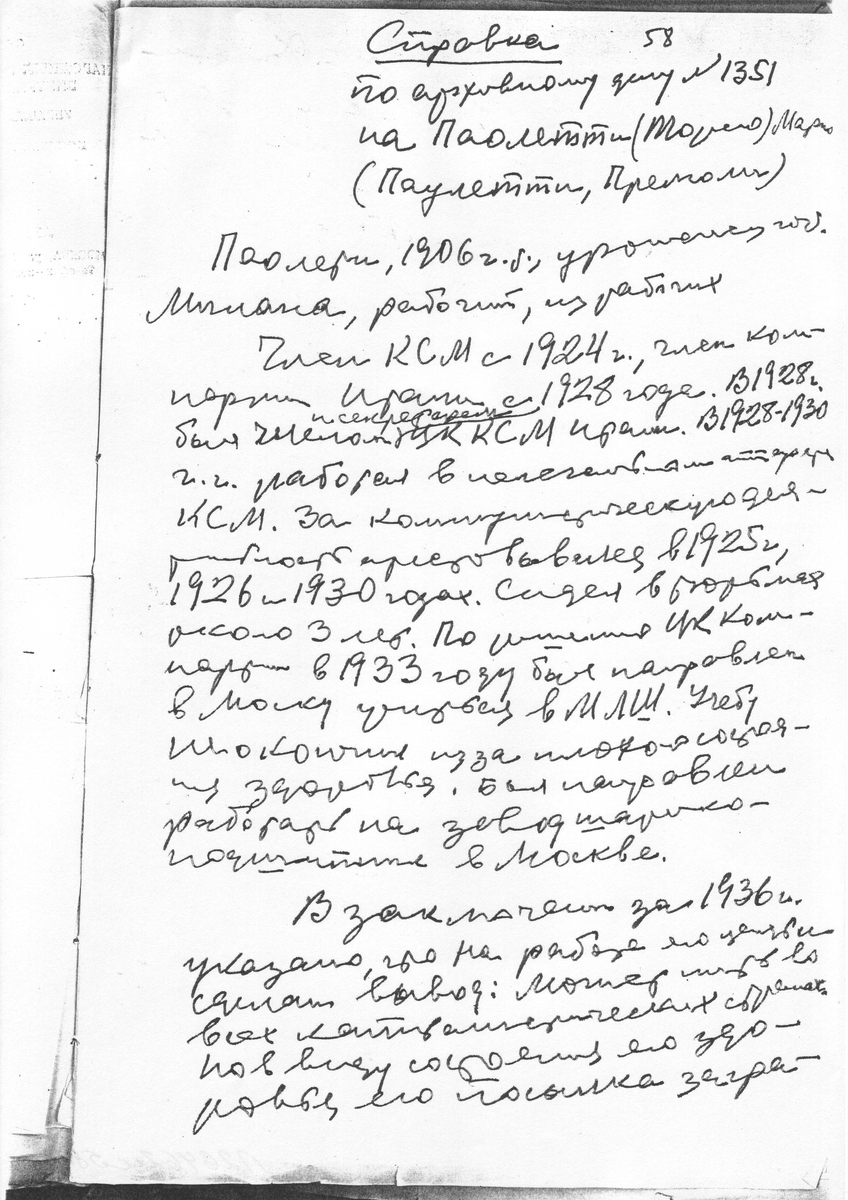 Справка 58
по архивному делу № 1351
на Паолетти (Морено) Марио
(Паулетти,
Паолети, 1906 г.р., уроженец гор.
Милана, рабочий, из рабочих
Член КСМ с 1924 г., член ком-
партии Италии с 1928 года. В 1928 г.
и секретарем
был членом ЦК КСМ Италии. В 1928-1930
г.г. работал в нелегальном аппарате
КСМ. За коммунистическую дея-
тельность арестовывался в 1925 г.,
1926 и 1930 годах. Сидел в тюрьмах
около 3 лет. По решению ЦК Ком-
партии в 1933 году был направлен
в Москву учиться в МЛШ. Учебу
не окончил из за плохого состоя-
ния здоровья. Был направлен
работать на завод шарико-
подшипник в Москве.
В заключении за 1936 г.
указано, что на работе его ценят и
сделан вывод: Может жить во
всех капиталистических странах.
Но в виду состояния его здо-
ровья его посылка загра-